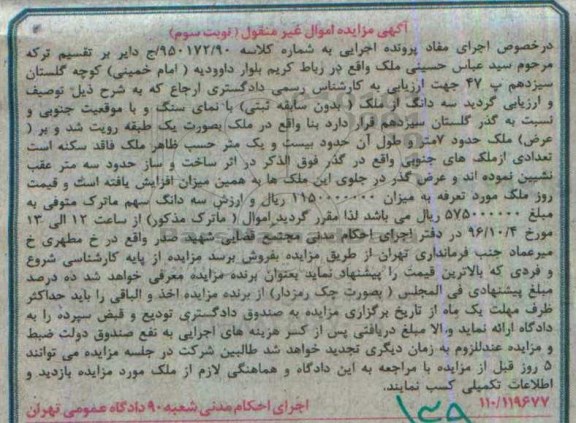 آگهی مزایده اموال غیر منقول ( نوبت سوم)
درخصوص اجرای مفاد پرونده اجرایی به شماره کلاسه ۹۵۰۱۷۲/۹۰/ج دایر بر تقسیم ترکه
مرحوم سید عباس حسینی ملک واقع در رباط کریم بلوار داوودیه ( امام خمینی) کوچه گلستان
سیزدهم پ ۴۷ جهت ارزیابی به کارشناس رسمی دادگستری ارجاع که به شرح ذیل توصیف
و ارزیابی گردید سه دانگ از ملک ( بدون سابقه ثبتی) با نمای سنگ و با موقعیت جنوبی و
نسبت به گذر گلستان سیزدهم قرار دارد بنا واقع در ملک بصورت یک طبقه رویت شد و بر (
عرض) ملک حدود ۷متر و طول آن حدود بیست و یک متر حسب ظاهر ملک فاقد سکنه است
تعدادی ازملک های جنوبی واقع در گذر فوق الذکر در اثر ساخت و ساز حدود سه متر عقب
نشینی نموده اند و عرض گذر در جلوی این ملک ها به همین میزان افزایش یافته است و قیمت
روز ملک مورد تعرفه به میزان ۱۱۵۰۰۰۰۰۰۰ ریال و ارزش سه دانگ سهم ماترک متوفی به
مبلغ ۵۷۵۰۰۰۰۰۰ ریال می باشد لذا مقرر گردید اموال ( ماترک مذکور) از ساعت ۱۲ الی ۱۳
مورخ ۹۶/۱۰/۴ در دفتر اجرای احکام مدنی مجتمع قضایی شهید صدر واقع در خ مطهری خ
میرعماد جنب فرمانداری تهران از طریق مزایده بفروش برسد مزایده از پایه کارشناسی شروع
و فردی که بالاترین قیمت را پیشنهاد نماید بعنوان برنده مزایده معرفی خواهد شد ده درصد
مبلغ پیشنهادی فی المجلس ( بصورت چک رمزدار) از برنده مزایده اخذ و الباقی را باید حداکثر
ظرف مهلت یک ماه از تاریخ برگزاری مزایده به صندوق دادگستری تودیع و قبض سپرده را به
دادگاه ارائه نماید و الا مبلغ دریافتی پس از کسر هزینه های اجرایی به نفع صندوق دولت ضبط
و مزایده عنداللزوم به زمان دیگری تجدید خواهد شد طالبین شرکت در جلسه مزایده می توانند
۵ روز قبل از مزایده با مراجعه به این دادگاه و هماهنگی لازم از ملک مورد مزایده بازدید و
اطلاعات تکمیلی کسب نمایند.
۱۱۰/۱۱۹۶۷۷ اجرای احکام مدنی شعبه ۹۰ دادگاه عمومی تهران
۱۳۹